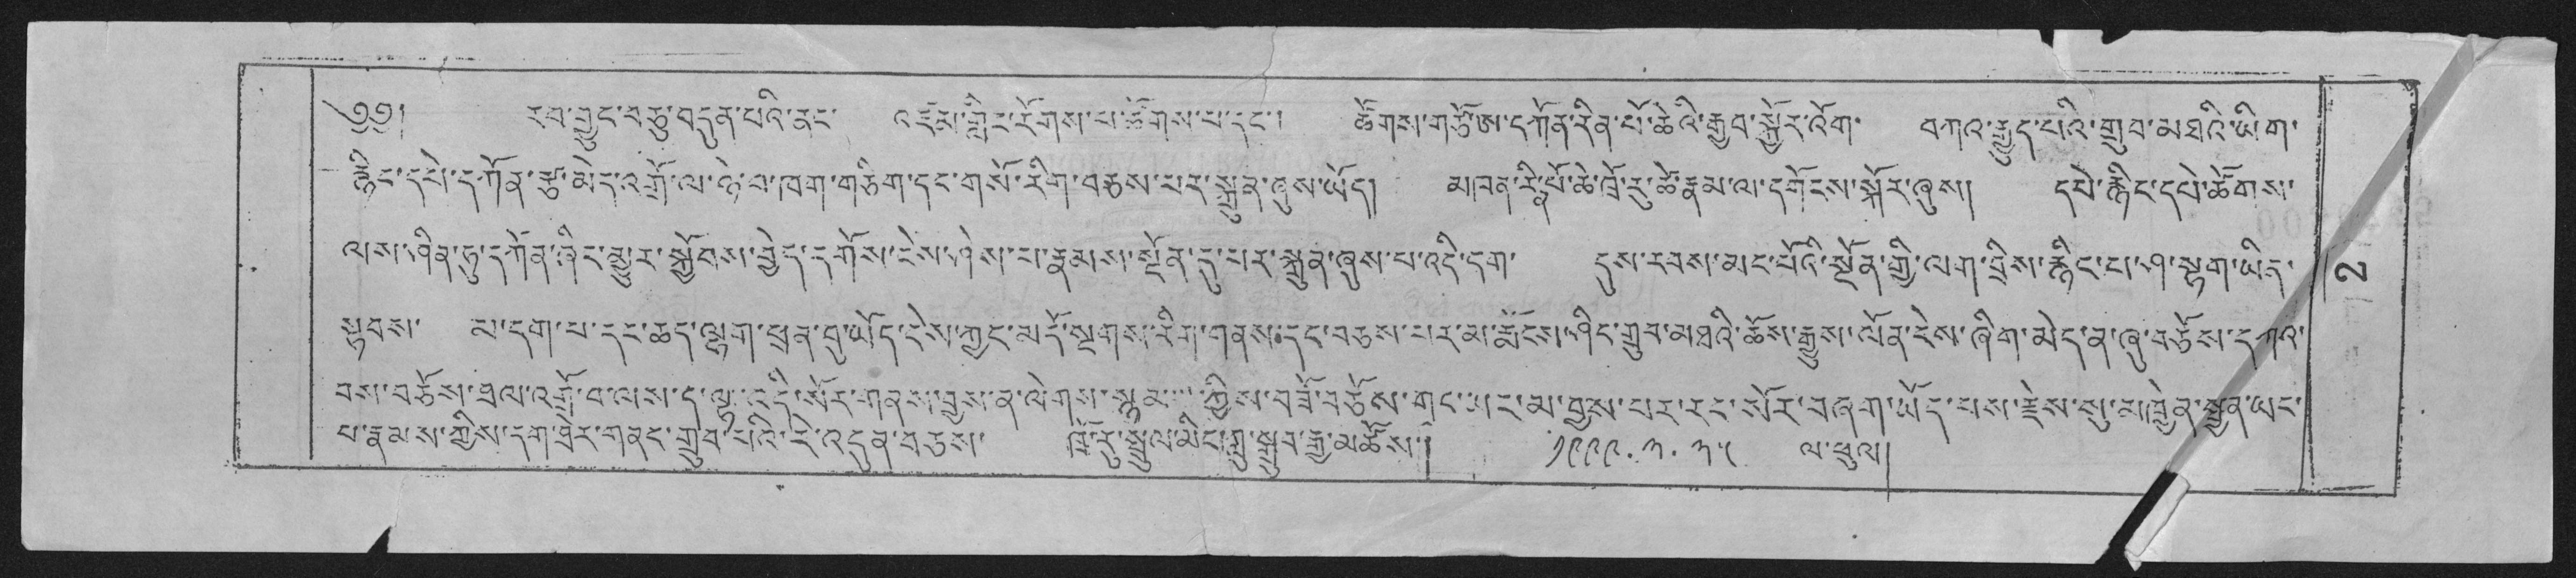 ༄༅། རབ་བྱུང་བཅུ་བདུན་པའི་ནང་ འཛམ་གླིང་རོགས་པ་ཚོགས་པ་དང་། ཚོགས་གཙོ་ཨ་དཀོན་རིན་པོ་ཆེའི་རྒྱབ་སྐྱོར་འོག་ བཀའ་རྒྱུད་པའི་གྲུབ་མཐའི་ཡིག་
རྙིང་དཔེ་དཀོན་རྩ་མེད་འགྲོ་ལ་ཉེ་བ་ཁག་གཅིག་དང་གསོ་རིག་བཅས་པར་སྐྲུན་ཞུས་ཡོད། མཁན་རིན་པོ་ཆེ་ཁྲོ་རུ་ཚེ་རྣམ་ལ་དགོངས་སྐོར་ཞུས། དཔེ་རྙིང་དཔེ་ཚོགས་
ལས་ཤིན་ཏུ་དཀོན་ཞིང་མྱུར་སྐྱོབས་བྱེད་དགོས་ངེས་ཤེས་པ་རྣམས་སྔོན་དུ་པར་སྐྲུན་ཞུས་པ་འདི་དག་ དུས་རབས་མང་པོའི་སྔོན་གྱི་ལག་བྲིས་རྙིང་པ་ཤ་སྟག་ཡིན་
སྟབས་ མ་དག་པ་དང་ཆད་ལྷག་ཕྲན་བུ་ཡོད་ངེས་ཀྱང་མདོ་སྔགས་རིག་གནས་དང་བཅས་པར་མ་རྨོངས་ཤིང་གྲུབ་མཐའི་ཆོས་རྒྱུས་ལོན་ངེས་ཞིག་མེད་ན་ཞུ་བཅོས་དཀའ་
བས་བཅོས་ཐལ་འགྲོ་བ་ལས་ད་ལྟ་འདི་སོར་གནས་བྱས་ན་ལེགས་སྙམ་ ཀྱིས་བཟོ་བཅོས་གང་ཡང་མ་བྱས་པར་རང་སོར་བཞག་ཡོད་པས་རྗེས་སུ་མཁྱེན་སྤྱན་ཡང་
པ་རྣམས་ཀྱིས་དག་ཐེར་གནང་གྲུབ་པའི་རེ་འདུན་བཅས་ ཁྲོ་རུ་སྤྲུལ་མིང་ཀླུ་སྒྲུབ་རྒྱ་མཚོས་། ༡༩༩༩.༣.༢༥ ལ་ཕུལ།